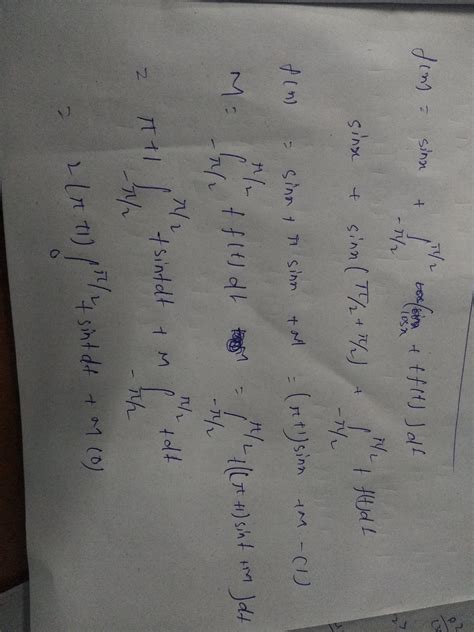 f(x) = sinx + ∫_{-π/2}^{π/2} (sinx + t f(t)) dt
sinx + sinx (π/2 + π/2) + ∫_{-π/2}^{π/2} t f(t) dt
f(x) = sinx + π sinx + M = (π+1) sinx + M - (1)
M = ∫_{-π/2}^{π/2} t f(t) dt M = ∫_{-π/2}^{π/2} t((π+1) sint + M) dt
= π+1 ∫_{-π/2}^{π/2} t sint dt + M ∫_{-π/2}^{π/2} t dt
= 2(π+1) ∫_{0}^{π/2} t sint dt + M(0)